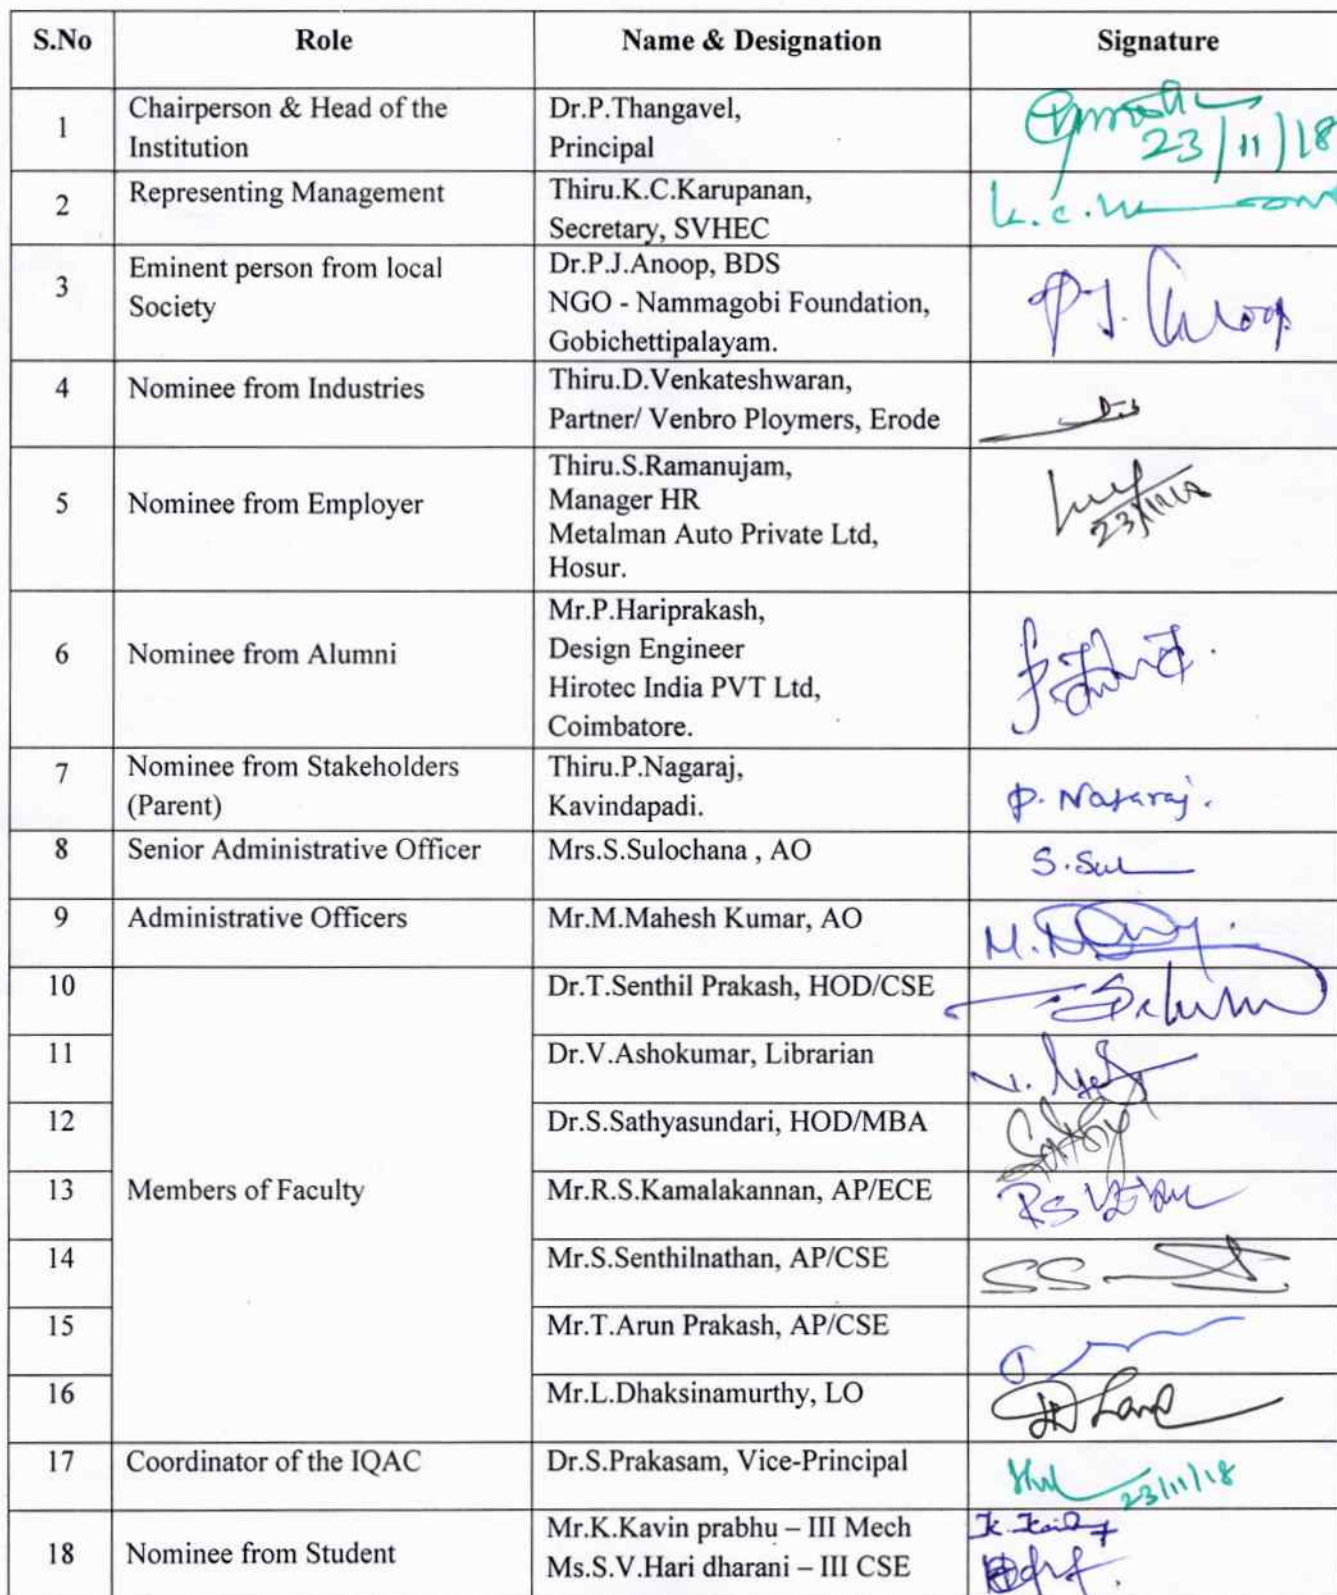 S.No Role Name & Designation Signature
1 Chairperson & Head of the Institution Dr.P.Thangavel,
Principal
23/11/18
2 Representing Management Thiru.K.C.Karupanan,
Secretary, SVHEC
K.C.
3 Eminent person from local Society Dr.P.J.Anoop, BDS
NGO - Nammagobi Foundation,
Gobichettipalayam.
P.J. Anoop
4 Nominee from Industries Thiru.D.Venkateshwaran,
Partner/ Venbro Ploymers, Erode
5 Nominee from Employer Thiru.S.Ramanujam,
Manager HR
Metalman Auto Private Ltd,
Hosur.
23/11/18
6 Nominee from Alumni Mr.P.Hariprakash,
Design Engineer
Hirotec India PVT Ltd,
Coimbatore.
7 Nominee from Stakeholders (Parent) Thiru.P.Nagaraj,
Kavindapadi.
P. Nagaraj.
8 Senior Administrative Officer Mrs.S.Sulochana , AO
S.Sul
9 Administrative Officers Mr.M.Mahesh Kumar, AO
10 Dr.T.Senthil Prakash, HOD/CSE
11 Dr.V.Ashokumar, Librarian
12 Dr.S.Sathyasundari, HOD/MBA
13 Members of Faculty Mr.R.S.Kamalakannan, AP/ECE
14 Mr.S.Senthilnathan, AP/CSE
15 Mr.T.Arun Prakash, AP/CSE
16 Mr.L.Dhaksinamurthy, LO
17 Coordinator of the IQAC Dr.S.Prakasam, Vice-Principal
23/11/18
18 Nominee from Student Mr.K.Kavin prabhu – III Mech
Ms.S.V.Hari dharani – III CSE